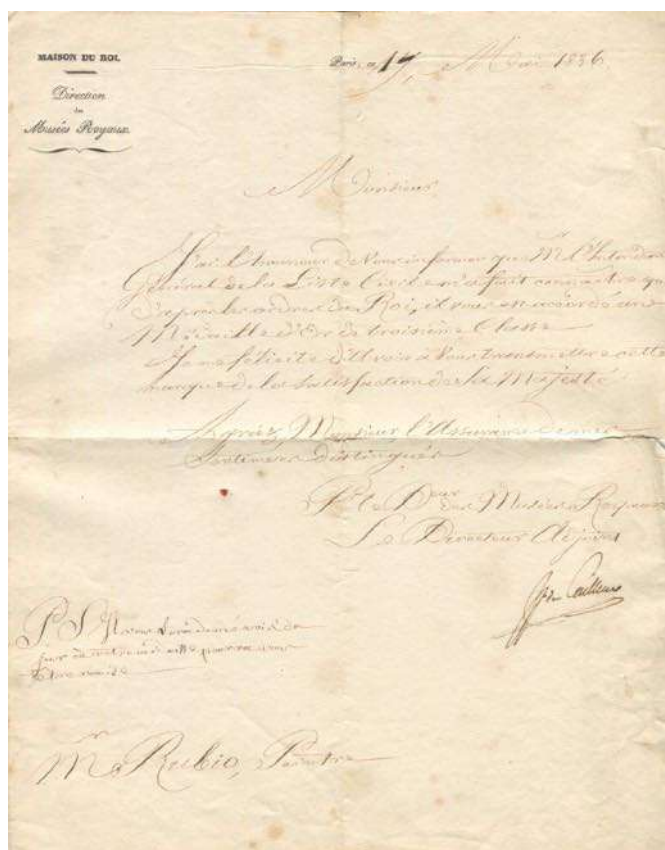 MAISON DU ROI.
Direction
des
Musées Royaux.
Paris, ce 17 Mai 1836.
Monsieur
J'ai l'honneur de Vous informer que M. l'Intendant
Général de la Liste Civile m'a fait connaitre que
d'après les ordres du Roi, il vous est accordé une
Médaille d'Or de troisième Classe
Je me félicite d'Avoir à Vous transmettre cette
marque de la Satisfaction de Sa Majesté
Agréez, Monsieur l'Assurance de mes
Sentimens distingués
Pr. le Deur des Musées Royaux
Le Directeur Adjoint
de Cailleux
P.S. Vous donné avis du
jour où cette médaille pourra vous
être remise
Mr Rubio, Peintre